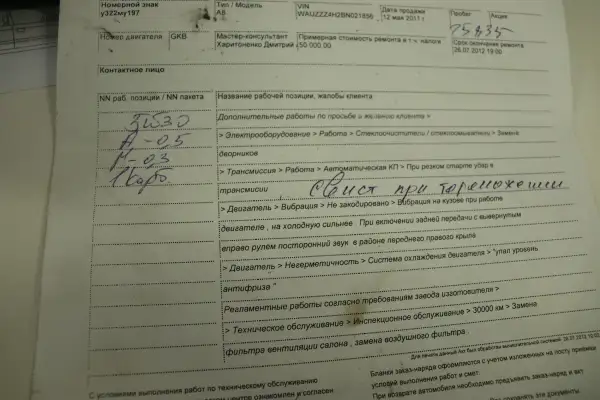 Номерной знак Тип / Модель VIN Дата продажи Пробег Акция
у322му197 A8 WAUZZZ4H2BN021856 12 мая 2011 г. 75835
Номер двигателя GKB Мастер-консультант Примерная стоимость ремонта в т.ч. налоги Срок окончания ремонта
Харитоненко Дмитрий 50 000.00 26.07.2012 19:00
Контактное лицо
NN раб. позиции / NN пакета Название рабочей позиции, жалобы клиента
Дополнительные работы по просьбе и желанию клиента >
А - 0,5 > Электрооборудование > Работа > Стеклоочистители / стеклоомыватели > Замена
- 0,3 дворников
> Трансмиссия > Работа > Автоматическая КП > При резком старте удар в
трансмисии Свист при торможении
> Двигатель > Вибрация > Не закодировано > Вибрация на кузове при работе
двигателе , на холодную сильнее При включении задней передачи с вывернутым
вправо рулем посторонний звук в районе переднего правого крыла
> Двигатель > Негерметичность > Система охлаждения двигателя > "упал уровень
антифриза "
Регламентные работы согласно требованиям завода изготовителя >
> Техническое обслуживание > Инспекционное обслуживание > 30000 км > Замена
фильтра вентиляции салона , замена воздушного фильтра
Для печати данный лист был обработан вычислительной системой
С условиями выполнения работ по техническому обслуживанию Бланки заказ-наряда оформляются с учетом изложенных на посту приёмки
ознакомлен и согласен условий выполнения работ и смет.
При возврате автомобиля необходимо предъявить заказ-наряд и акт
эти документы